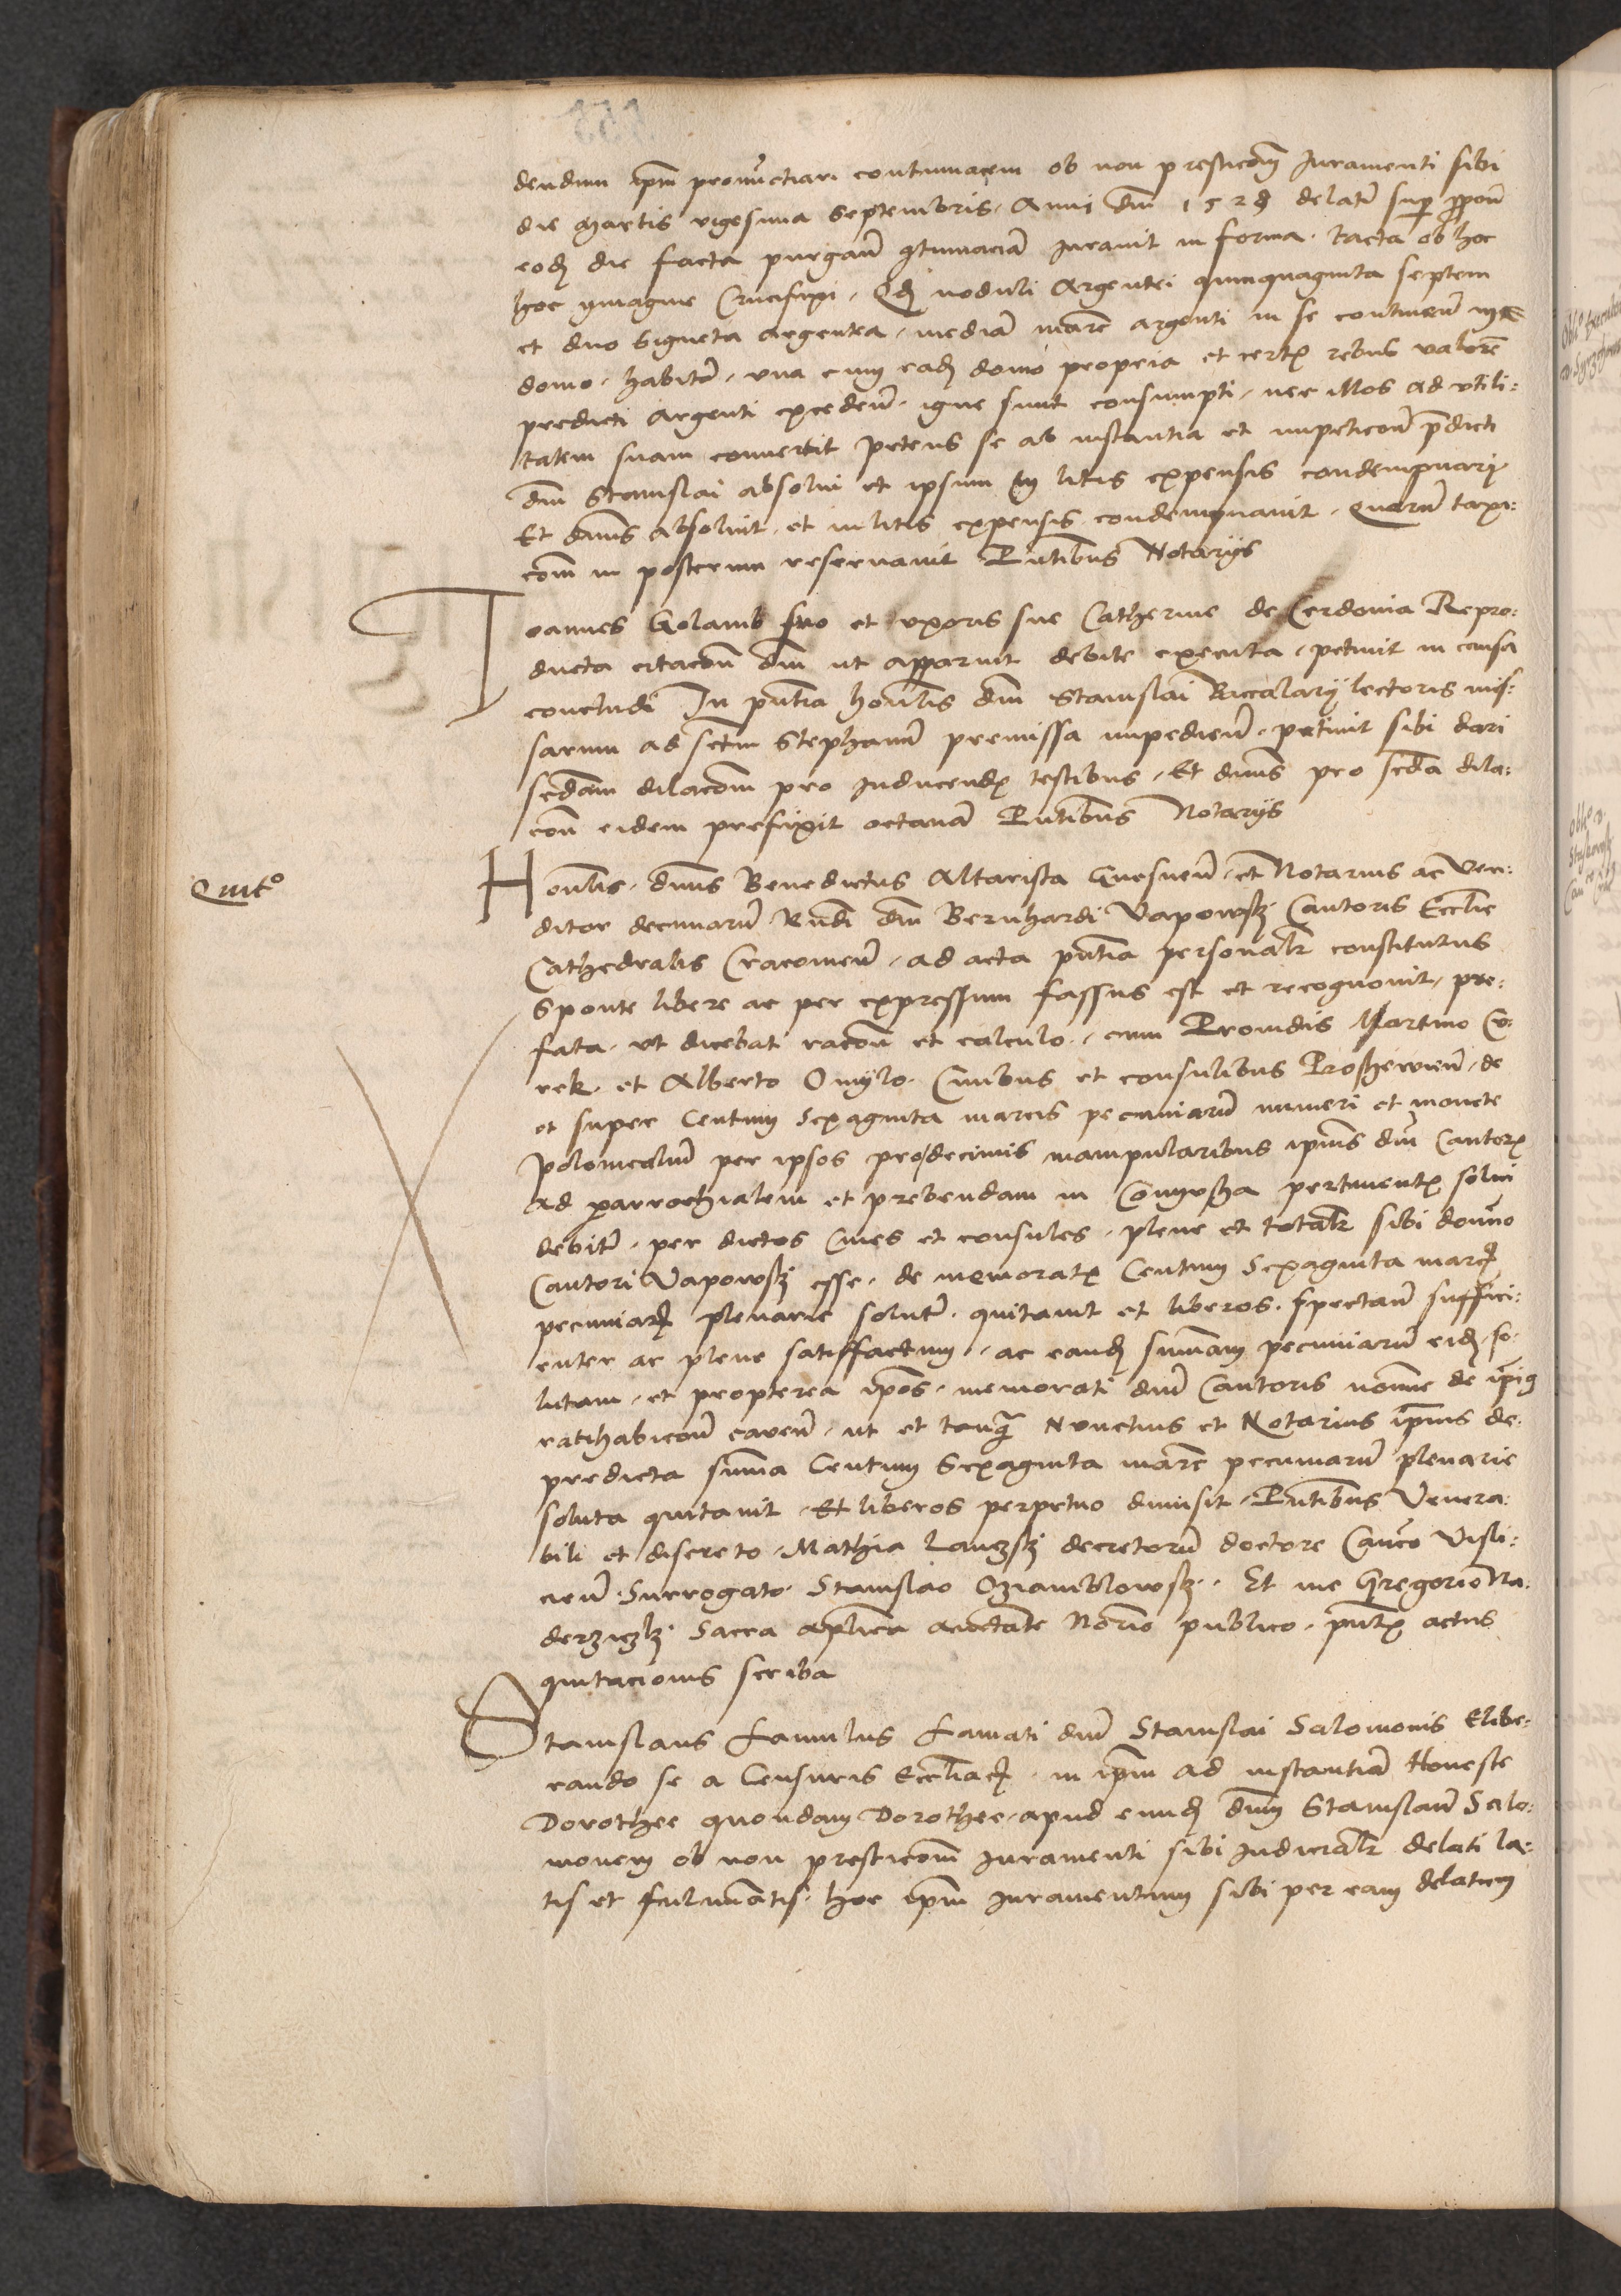 dendum ipm pronunctiari contumacem ob non presticom Juramenti sibi
die Martis vigesima Septembris Anni dni 1528 delati sup
eod die facta purgan contumaciam Juravit in forma tacta ob hoc
hoc ymagine Crucifixi. Qd noduli Argentei quinquaginta septem
et duo Signeta argentea, mediam marc argenti in se continen in
domo habite, vna cum ead domo propria et certis rebus valore
predicti Argenti exceden igne sunt consumpti, nec illos ad vtili:
tatem suam convertit petens se ab instantia et impeticone predicti
dni Stanislai absolui et ipsum in litis expensis condempnari
Et dnus absoluit et in litis expensis condempnauit. Quarum taxa:
com in posterum reseruauit Pntibus Notarijs
Joannes Golamb suo et vxoris sue Catherine de Cerdonia Repro:
ducta citacon dni ut apparuit debite executa, petiuit in causa
concludi In pntia honlis dni Stanislai Baccalarij lectoris mis:
sarum ad sctm Stephanum premissa impedien. petiuit sibi dari
scdam dilacom pro inducendis testibus. Et dnus pro scda dila:
con eidem prefixit octauam Pntibus Notarijs
Quito
Honlis dnus Benedictus Altarista Gnesnen, et Notarius ac Ven:
ditor decimarum Rndi dni Bernhardi Vapowskj Cantoris Ecclie
Cathedralis Cracouien, ad acta pntia personalr constitutus
Sponte libere ac per expressum fassus est et recognouit, pre:
fata vt dicebat racon et calculo, cum Prouidis Martino Cu:
rek et Alberto Omylo Ciuibus et consulibus Proshouien, de
et super Centum Sexaginta marcis pecuniarum numeri et monete
polonicalium per ipsos pro decimis manipularibus ipius dni Cantoris
ad parrochialem et prebendam in pertinentis solui
debitis per dictos Ciues et consules plene et totalr sibi domino
Cantori Vapowskj esse de memoratis Centum Sexaginta marcis
pecuniarum plenarie solutis quitauit et liberos, suffici:
enter ac plene satisffactum, ac eand summam pecuniarum eid so:
lutam, et propterea ipos memorati dni Cantoris nomine de ipius
ratihabicon cauen, ut et tanq Nunctius et Notarius ipius de
predicta summa Centum Sexaginta marc pecuniarum plenarie
soluta quitauit Et liberos perpetuo dimisit Pntibus Venera:
bili et discreto Mathia Lanczskj decretorum doctore Canco Visli:
cien Surrogato Stanislao Oziamblowskj. Et me Gregorio Na:
derziczkj Sacra aplica auctate Norio publico pntis actus
quitacionis scriba
Stanislaus Famulus Famati dni Stanislai Salomonis Elibe:
rando se a Censuris Eccliacis in ipm ad instantiam Honeste
Dorothee quondam Dorothee apud eund dnum Stanislaum Salo:
monem ob non presticom Juramenti sibi Judicialr delati la:
tis et fulminatis hoc ipm Juramentum sibi per eam delatum